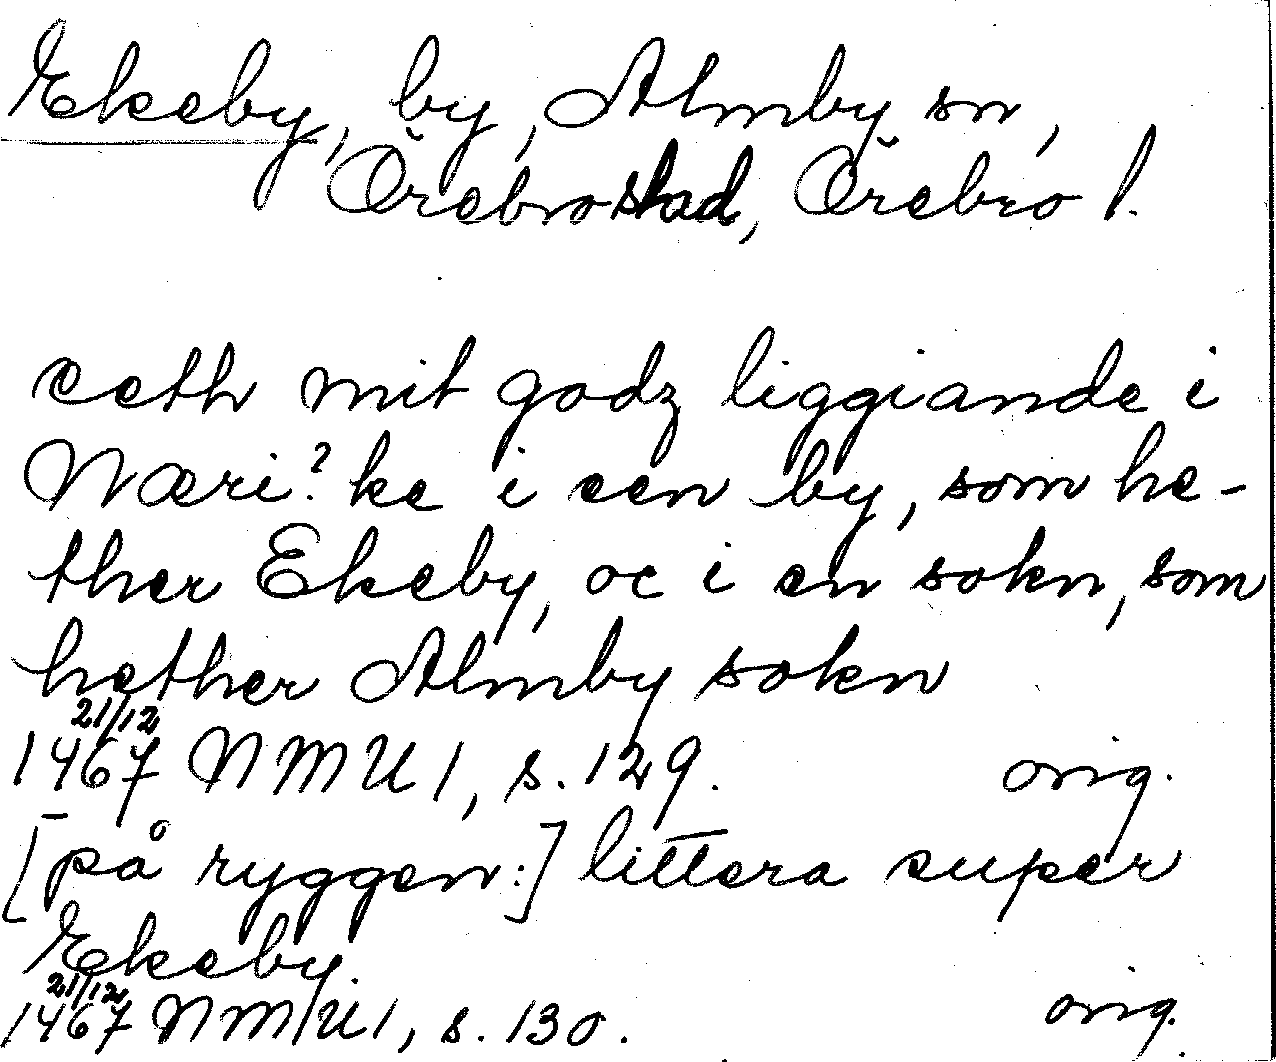 Ekeby, by, Almby sn,
Örebro stad, Örebro l.
eeth mit godz liggiande i
Næri? ke i een by, som he-
ther Ekeby, oc i en sokn, som
hether Almby sokn
21/12
1467 NMU 1, s. 129. orig.
[på ryggen:] littera super
Ekeby.
21/12
1467 NMU 1, s. 130. orig.